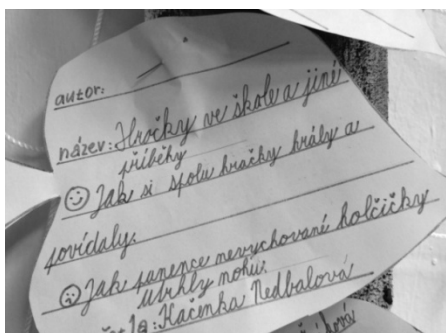 autor:
název: Hračky ve škole a jiné
příběhy
☺ Jak si spolu hračky hrály a
povídaly.
☹ Jak panence nevychované holčičky
utrhly nohu.
Kačenka Nedbalová